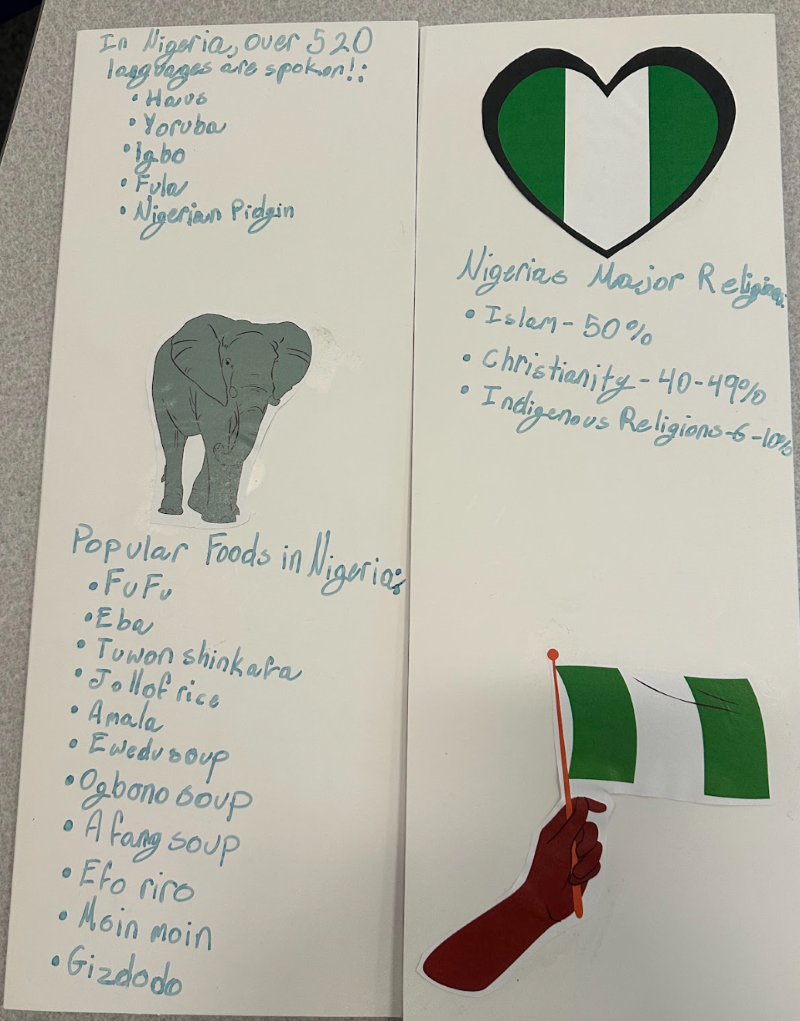 In Nigeria, over 520
languages are spoken!:
• Haus
• Yoruba
• Igbo
• Fula
• Nigerian Pidgin
Popular Foods in Nigeria:
• FuFu
• Eba
• Tuwon shinkafa
• Jollof rice
• Amala
• Ewedu soup
• Ogbono soup
• Afang soup
• Efo riro
• Moin moin
• Gizdodo
Nigerias Major Religions:
• Islam - 50%
• Christianity - 40-49%
• Indigenous Religions - 6 - 10%